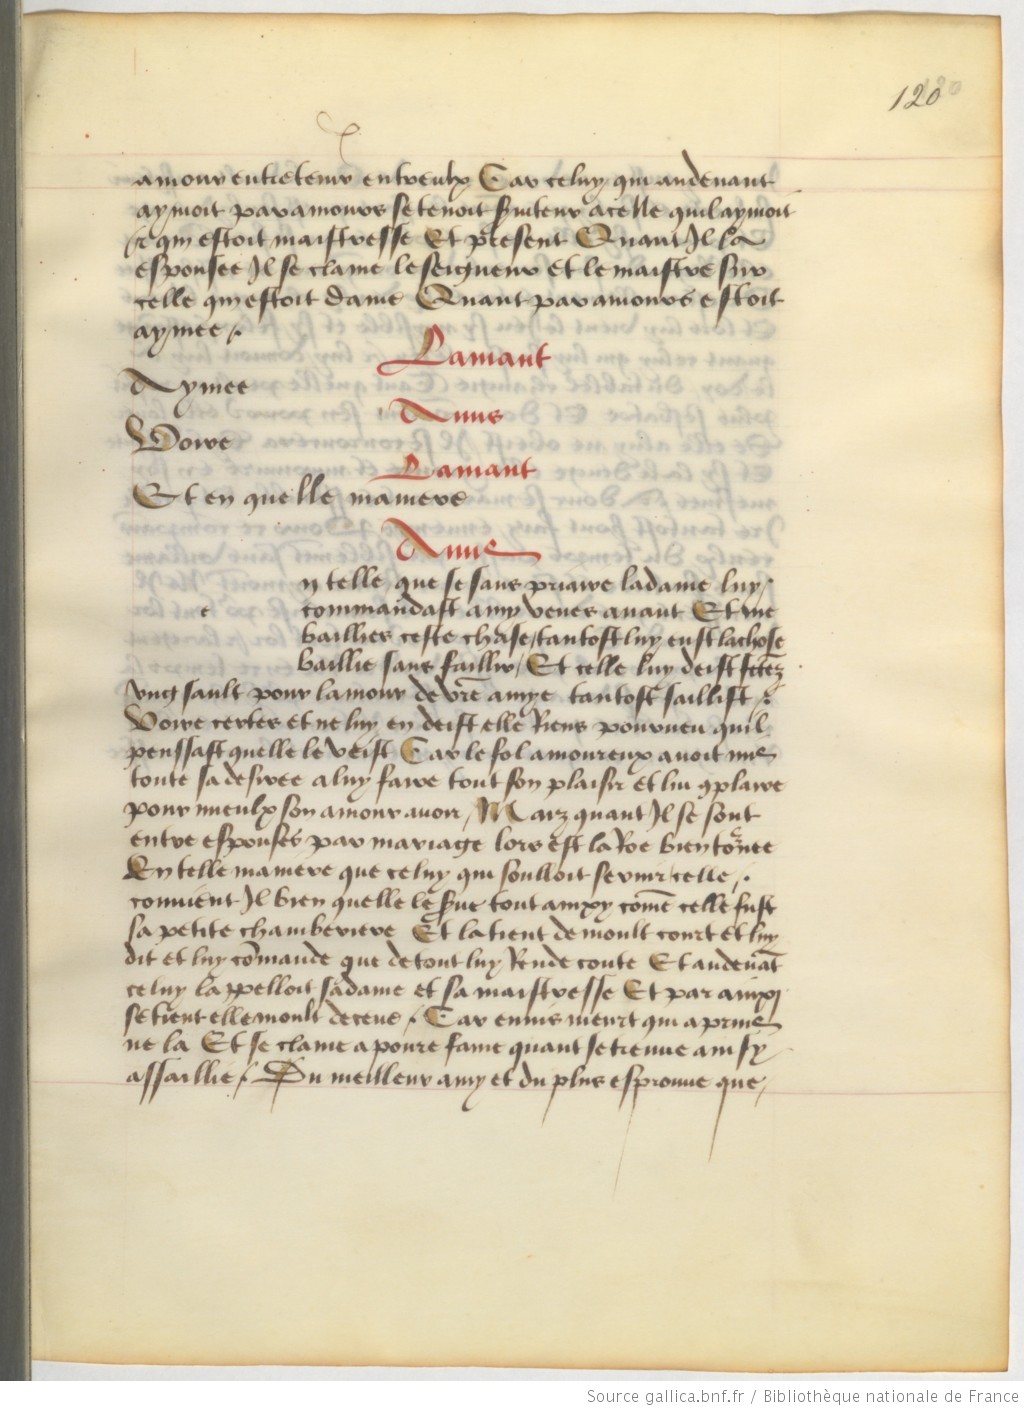 120
amour entretenir entreulx Car celuy qui audeuant
aymoit par amours se tenoit seruiteur a celle quil aymoit
et qui estoit maistresse Et present Quant Il la
espousee Il se clame le seigneur et le maistre sur
celle qui estoit dame Quant par amours estoit
aymee
Lamant
Aymee
Amis
Voire
Lamant
Et en quelle maniere
Amis
e
n telle que se sans priaire la dame luy
commandast amy venes auant Et me
baillies ceste chose / tantost luy eust la chose
baillie sans faillir / Et celle luy deist
vng sault pour lamour de vre amye tantost saillist
Voire certes et ne luy en deist elle Riens pourueu quil
penssast quelle le veist Car le fol amoureux auoit mis
toute sa desiree a luy faire tout son plaisir et lui 9plaire
pour mieulx son amour auoir / Maiz quant Il se sont
entre espousés par mariage lors est la Roe bien tornee
En telle maniere que celuy qui soulloit seruir celle /
conuient Il bien quelle le serue tout ainxy comme celle fust
sa petite chamberiere Et la tient de moult court et luy
dit et luy commande que de tout luy Rende conte Et audeuat
celuy lappelloit sa dame et sa maistresse Et par ainxi
se tient elle moult deceue / Car enuis meurt qui apris
ne la Et se clame a poure fame quant se treuue ainsy
assaillie / Du meilleur amy et du plus esprouue que
Source gallica.bnf.fr / Bibliothèque nationale de France